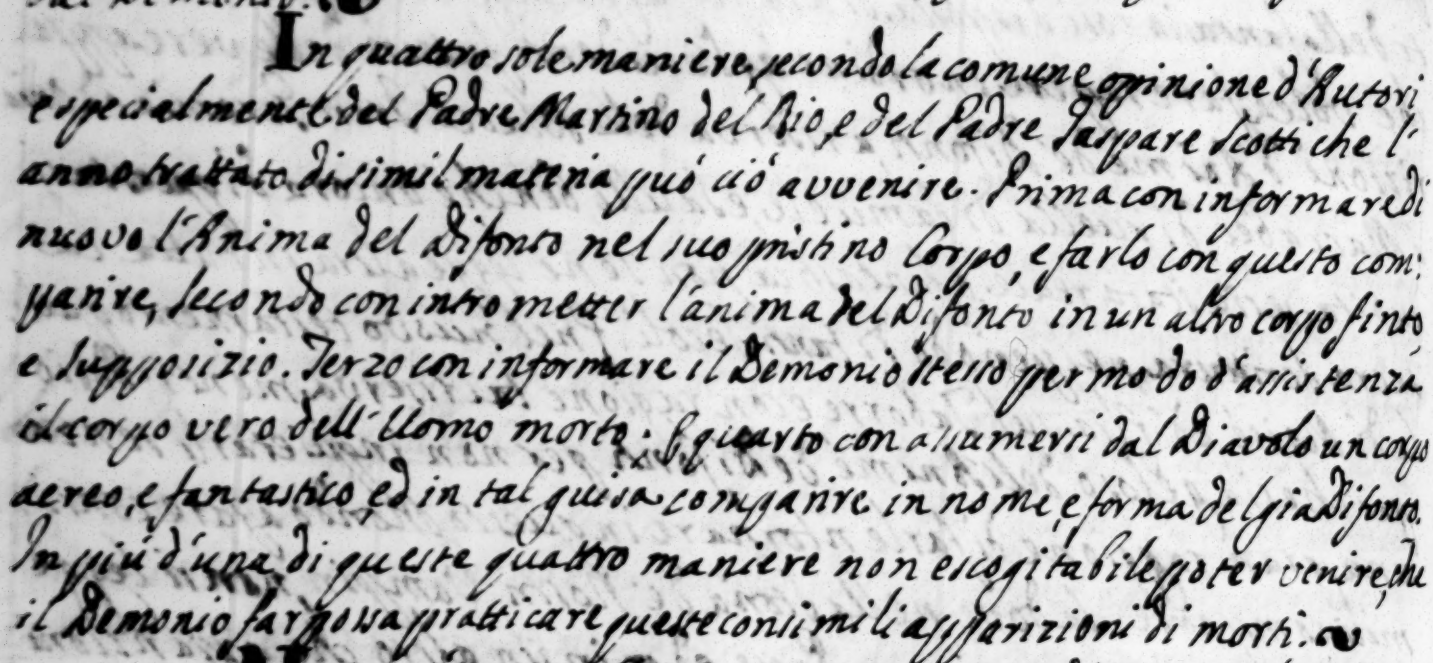 In quattro sole maniere, secondo la comune opinione d'Autori
e specialmente del Padre Martino del Rio, e del Padre Gaspare Scotti che l'
anno trattato di simil materia può ciò avvenire. Prima con informare di
nuovo l'Anima del Difonto nel suo pristino Corpo, e farlo con questo com:
parire, Secondo con intrometter l'anima del Difonto in un altro corpo finto,
e Supposizio. Terzo con informare il Demonio stesso per modo d'assistenza
il corpo vero dell'Uomo morto. E quarto con assumersi dal Diavolo un corpo
aereo, e fantastico, ed in tal guisa comparire in nome, e forma del gia Difonto.
In più d'una di queste quattro maniere non escogitabile poter venire, che
il Demonio far possa pratticare queste consimili apparizioni di morti.